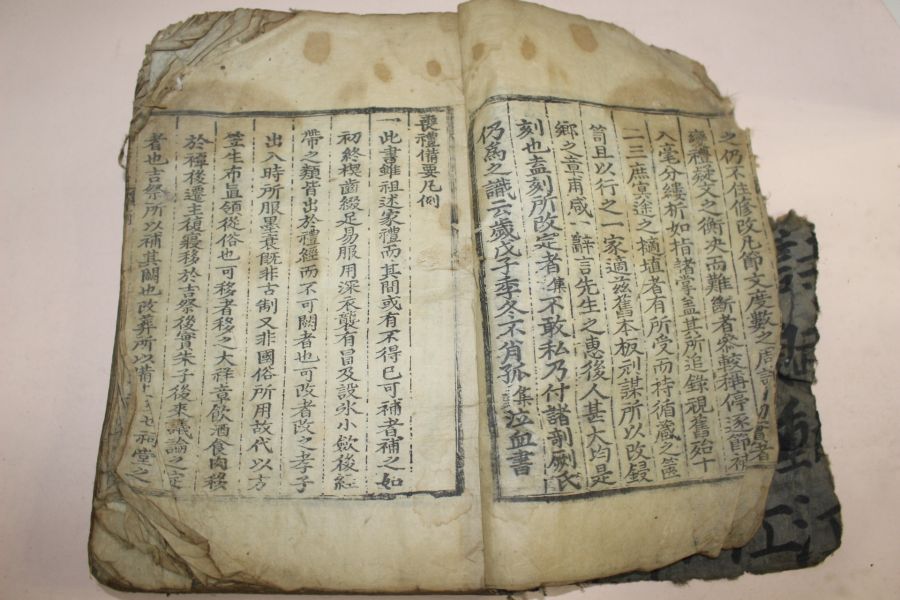 之仍不住修改凡節文度數之周詳 者
變禮疑文之衡決而難斷者參較稱停逐節補
入毫分縷析如指諸掌盖其所追錄視舊殆十
二三庶冥途之擿埴者有所受而持循藏之篋
笥且以行之一家適玆舊本板刓謀所以改錄
鄕之章甫咸辭言先生之惠後人甚大均是
刻也盍刻所改定者集不敢私乃付諸剞劂氏
仍爲之識云歲戊子季冬不肖孤集泣血書
喪禮備要凡例
一此書雖祖述家禮而其間或有不得已可補者補之如
初終楔齒綴足易服用深衣襲有冒及設氷小斂後絰
帶之類皆出於禮經而不可闕者也可改者改之孝子
出入時所服墨衰旣非古制又非國俗所用故代以方
笠生布直領從俗也可移者移之大祥章飮酒食肉移
於禫後遷主復寢移於吉祭後實朱子後來議論之定
者也吉祭所以補其闕也改葬所以備 祠堂之
重
江